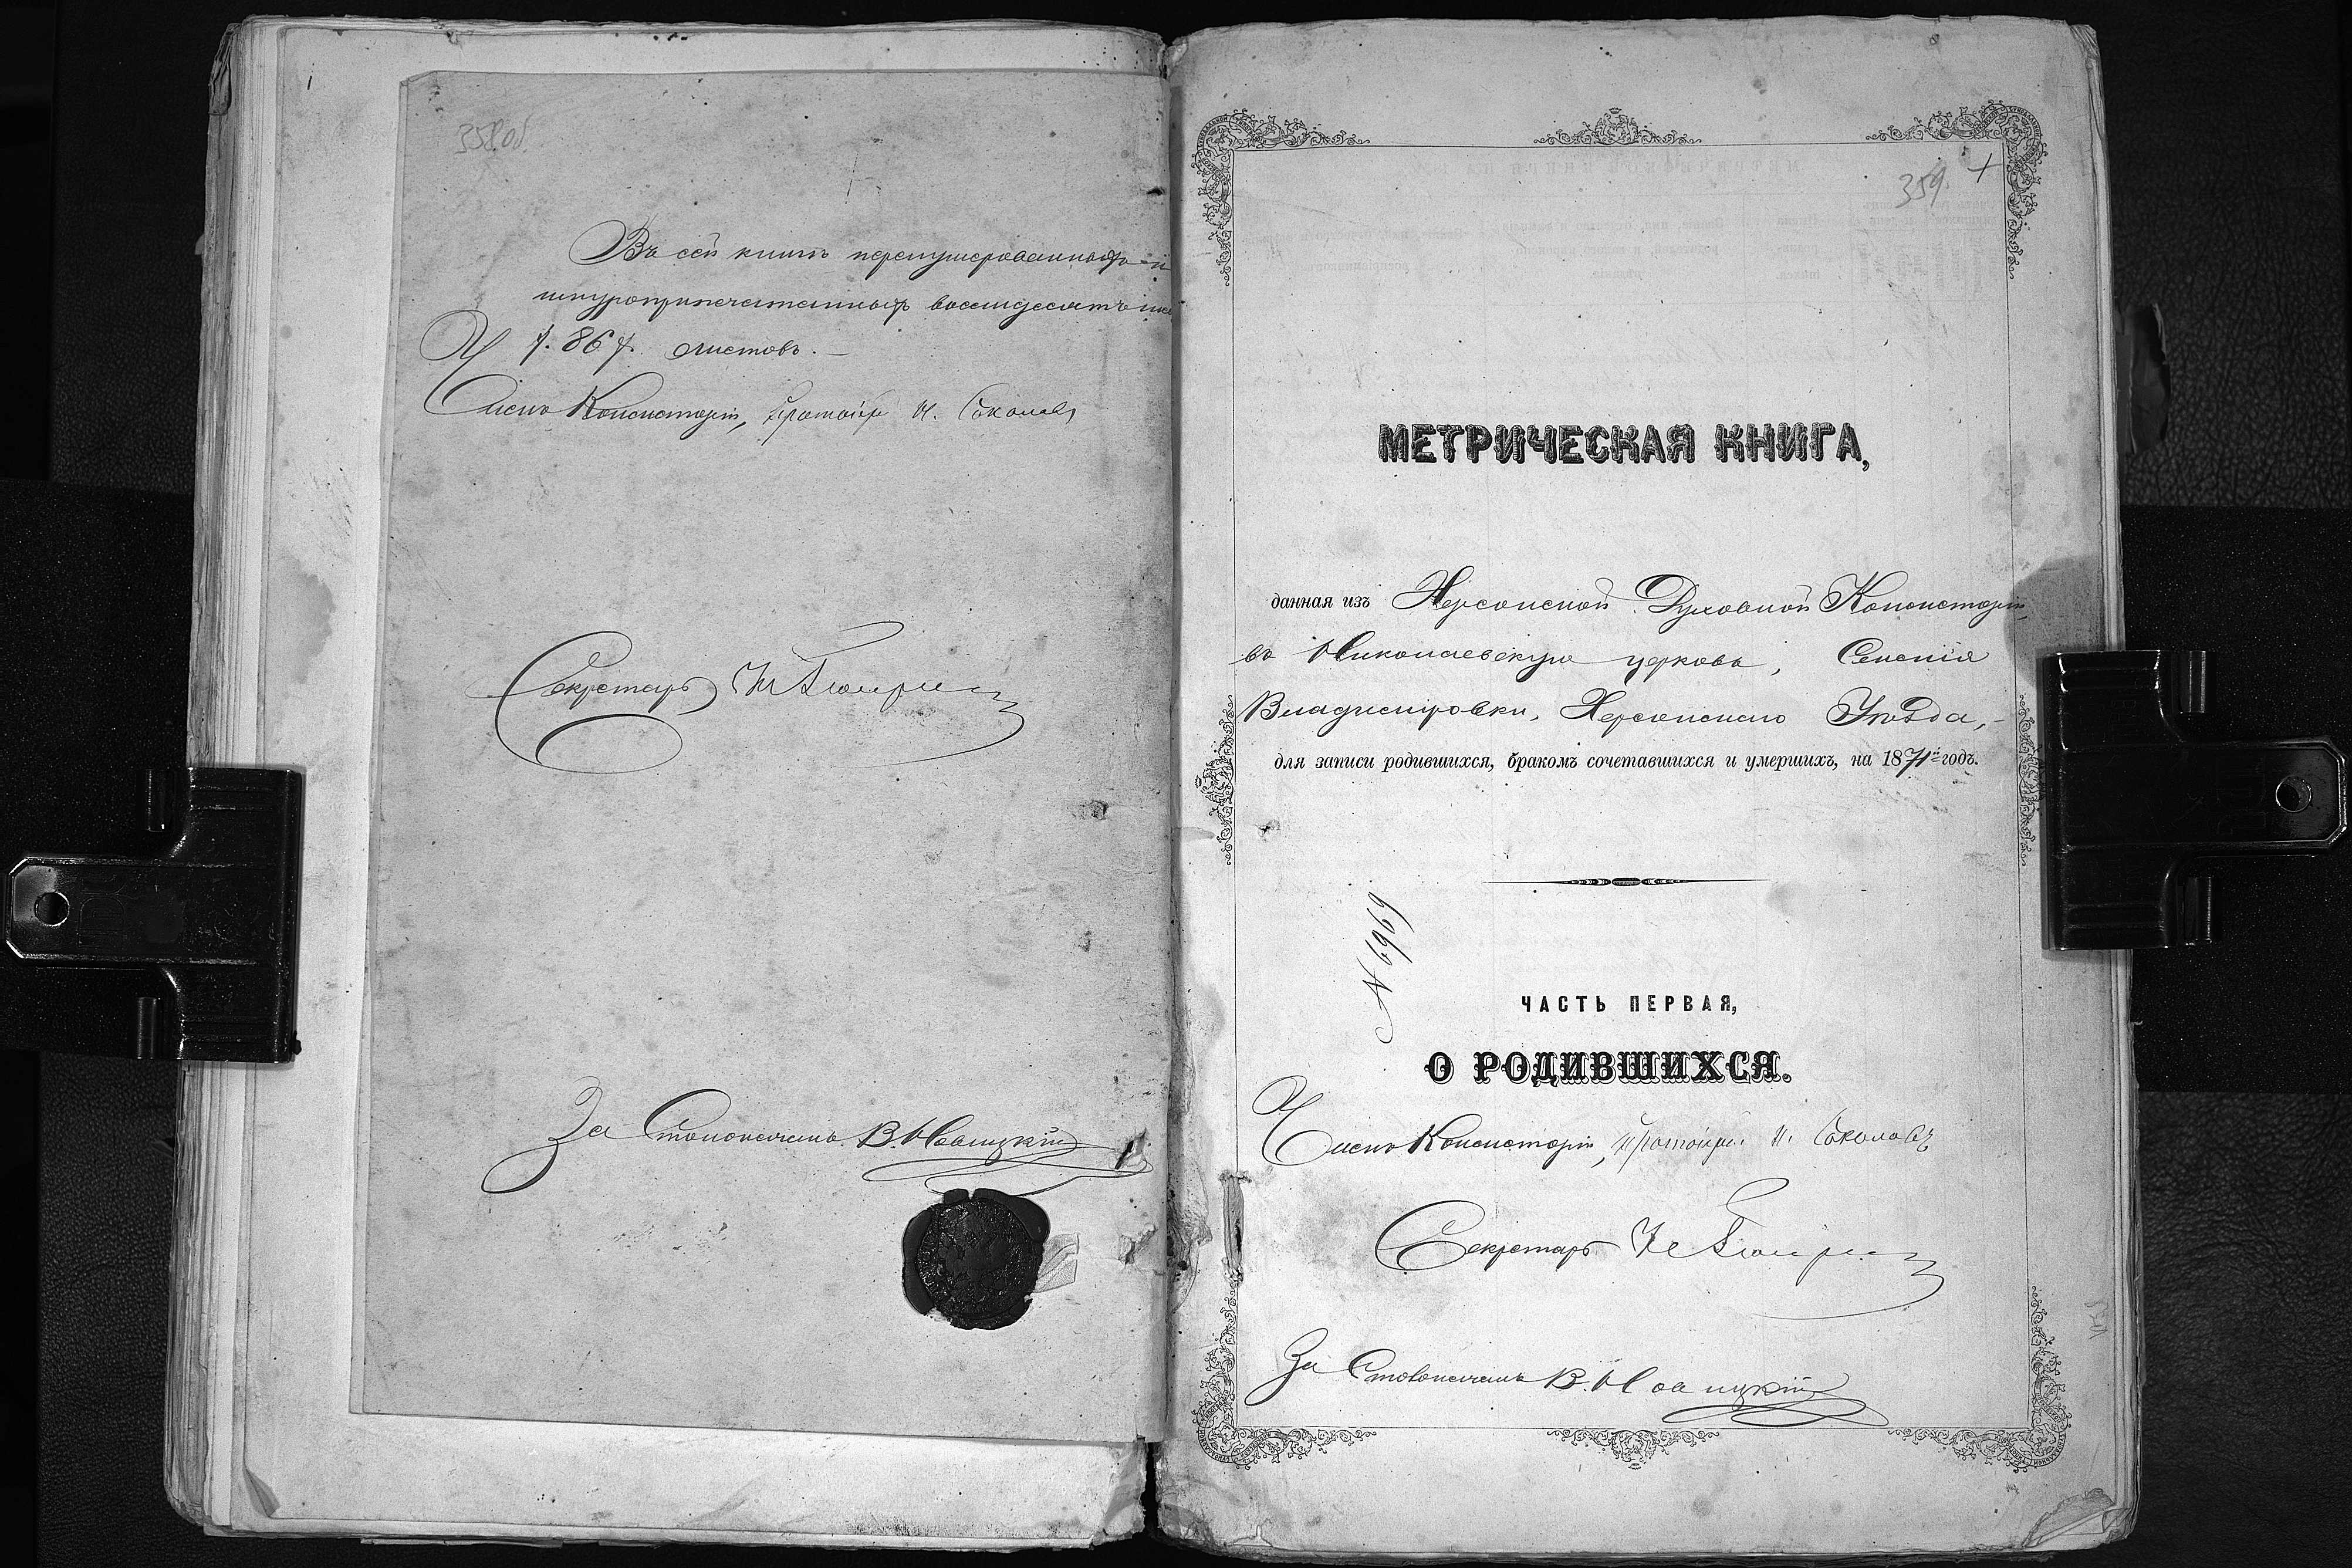 358об.
Въ сей книгѣ перенумерованныхъ и
шнуроприпечатанныхъ восемдесятъ
/. 86 /. листовъ. —
Членъ Консисторіи, Протоіерей И. Соколовъ
Секретарь
За Столоначальн. В. Новицкій
359.
МЕТРИЧЕСКАЯ КНИГА,
данная изъ Херсонской Духовной Консисторіи,
въ Николаевскую церковь, Селенія
Владиміровки, Херсонскаго Уѣзда,
для записи родившихся, бракомъ сочетавшихся и умершихъ, на 1871й годъ.
№ 6969
ЧАСТЬ ПЕРВАЯ,
О РОДИВШИХСЯ.
Членъ Консисторіи, Протоіерей И. Соколовъ
Секретарь
За Столоначальн. В. Новицкій